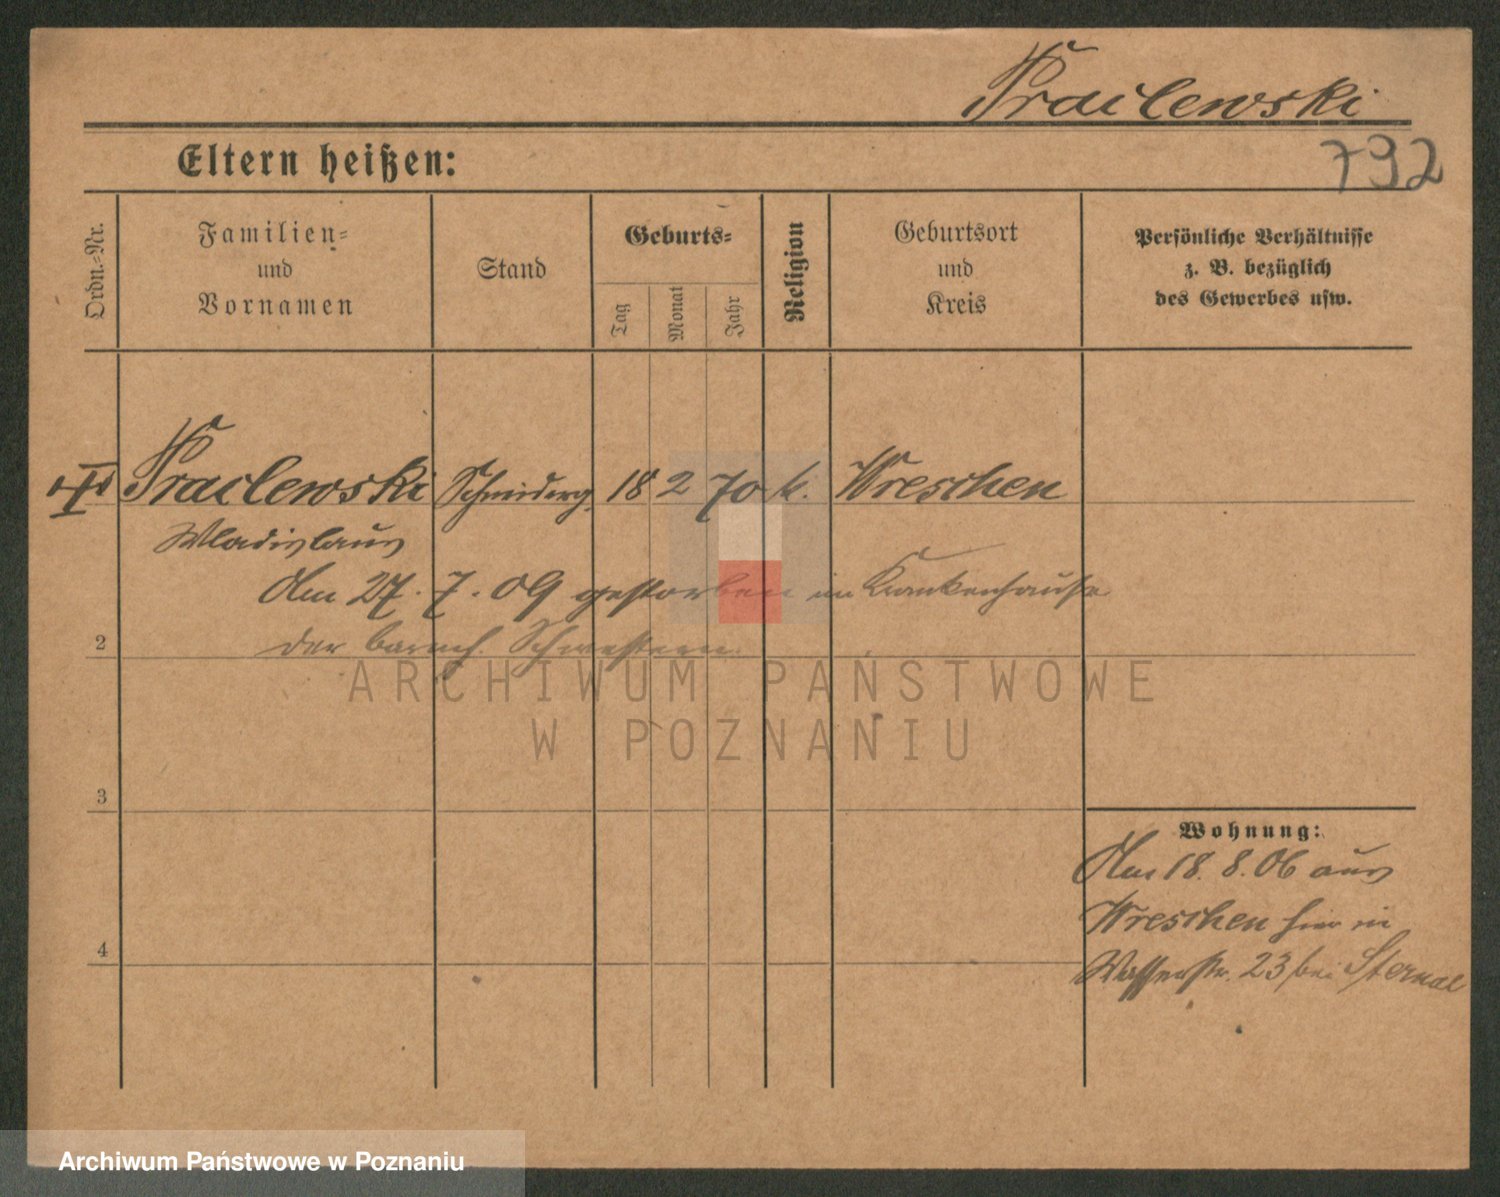 Praclewski
792
Eltern heißen:
Ordn.-Nr.
Familien- und Vornamen
Stand
Geburts-
Tag
Monat
Jahr
Religion
Geburtsort und Kreis
Persönliche Verhältnisse z. B. bezüglich des Gewerbes usw.
Praclewski Schneiderg. 18 2 70 k. Wreschen
Wladislaus
Am 27. 7. 09 gestorben im Krankenhause
2 der barmh. Schwestern.
3
Wohnung:
Am 18. 8. 06 aus
Wreschen hier in
4
Wasserstr. 23 bei Sternal
ARCHIWUM PAŃSTWOWE
W POZNANIU
Archiwum Państwowe w Poznaniu